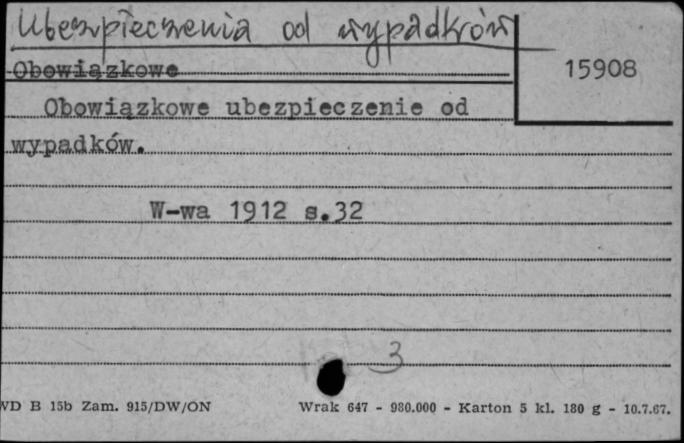 Ubezpieczenia od wypadków
Obowiązkowe
15908
Obowiązkowe ubezpieczenie od
wypadków.
W-wa 1912 s.32
3
WD B 15b Zam. 915/DW/ON
Wrak 647 - 980.000 - Karton 5 kl. 180 g - 10.7.67.